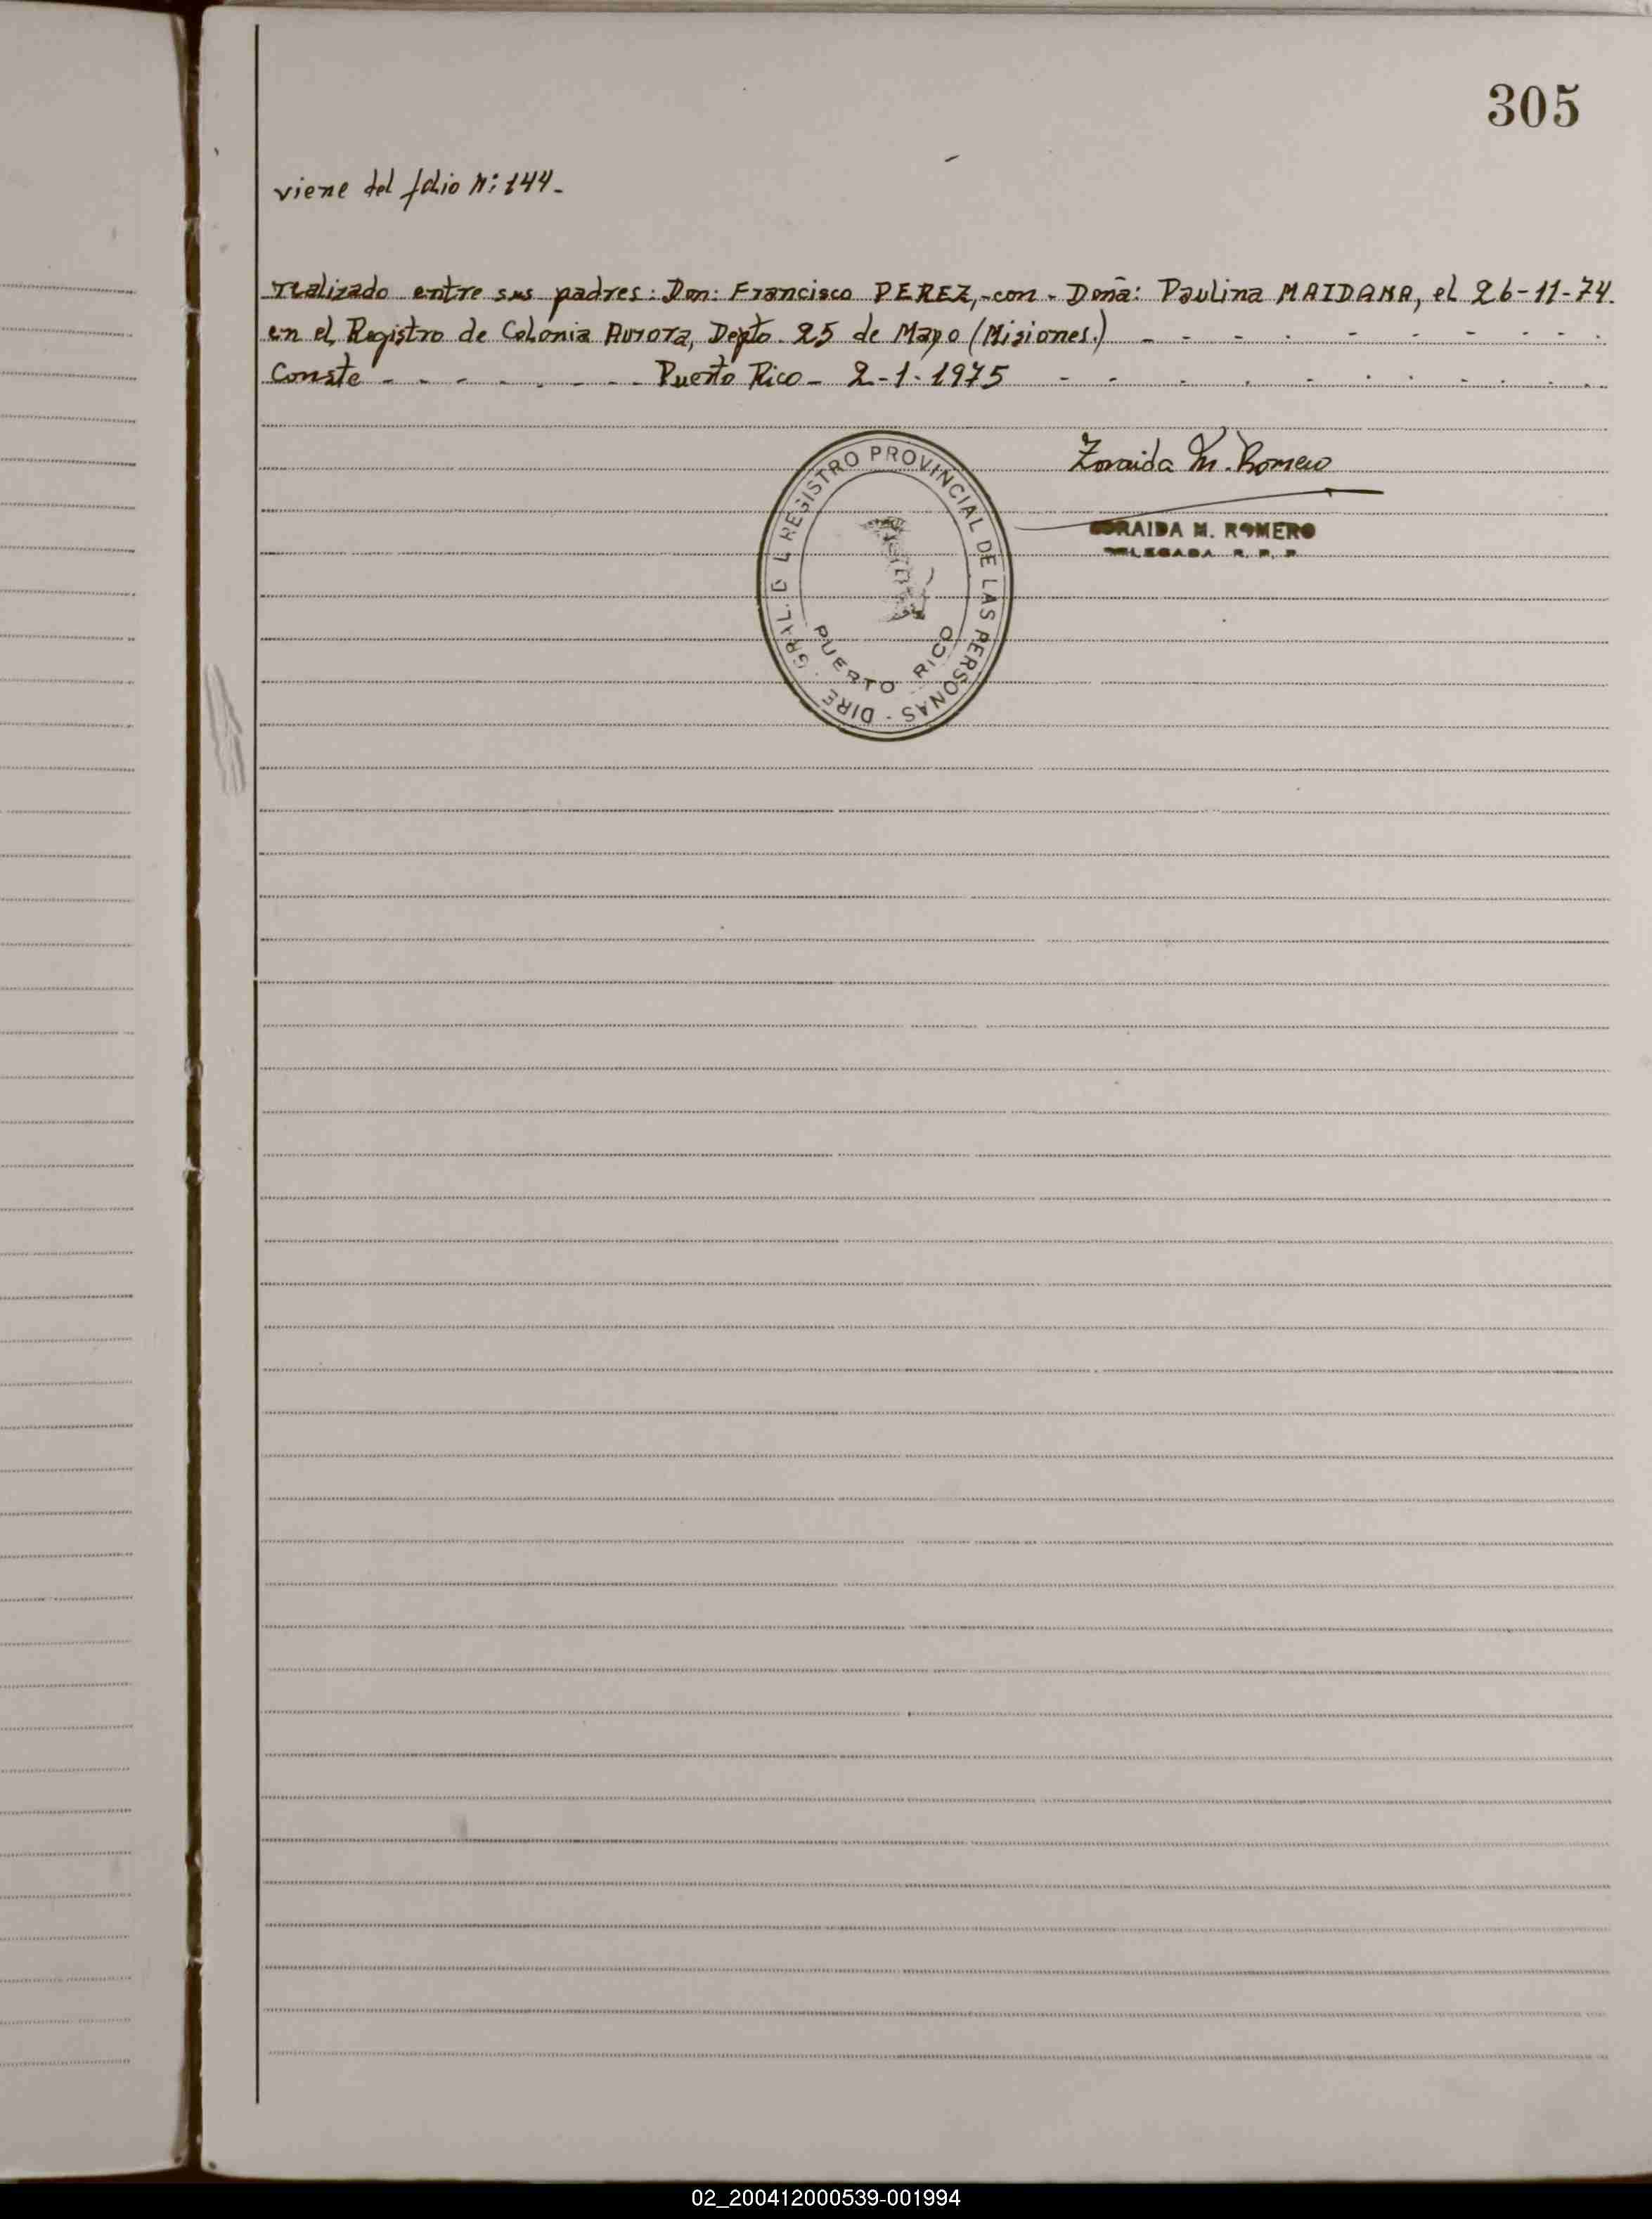 305
viene del folio Nº 144.-
realizado entre sus padres: Don: Francisco PEREZ,-con - Doña: Paulina MAIDANA, el 26-11-74.
en el Registro de Colonia Aurora, Depto. 25 de Mayo (Misiones.) - - - - - - - -
Conste - - - - - - - Puerto Rico - 2-1-1975 - - - - - - - - -
Zoraida M. Romero
ZORAIDA M. ROMERO
DELEGADA R. P. P.
DIRE . GRAL. D L REGISTRO PROVINCIAL DE LAS PERSONAS -
PUERTO RICO
02_200412000539-001994